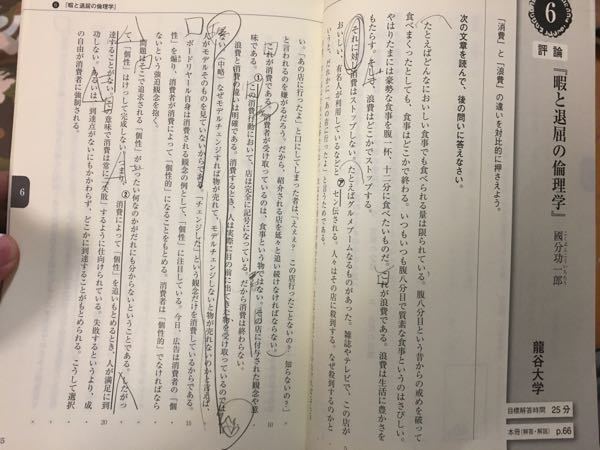 6
評論
『暇と退屈の倫理学』
國分功一郎
こくぶんこういちろう
龍谷大学
目標解答時間 25分
本冊(解答・解説) p.66
「消費」と「浪費」の違いを対比的に押さえよう。
次の文章を読んで、後の問いに答えなさい。
たとえばどんなにおいしい食事でも食べられる量は限られている。腹八分目という昔からの戒めを破って
食べまくったとしても、食事はどこかで終わる。いつもいつも腹八分目で質素な食事というのはさびしい。
やはりたまには豪勢な食事を腹一杯、十二分に食べたいものだ。これが浪費である。浪費は生活に豊かさを
もたらす。そして、浪費はどこかでストップする。
それに対し消費はストップしない。たとえばグルメブームなるものがあった。雑誌やテレビで、この店が
おいしい、有名人が利用しているなどと
㋐
セン伝される。人々はその店に殺到する。なぜ殺到するのかと
いうと、だれかに「あの店に行ったよ」と言うためである。
6 『暇と退屈の倫理学』
い。「あの店に行ったよ」と口にしてしまった者は、「えぇぇ? この店行ったことないの? 知らないの?」
と言われるのを嫌がるだろう。だから、紹介される店を延々と追い続けなければならない。
①
これが消費である。消費者が受け取っているのは、食事という物ではない。その店に付与された観念や意
味である。この消費行動において、店は完全に記号になっている。だから消費は終わらない。
10
浪費と消費の違いは明確である。消費するとき、人は実際に目の前に出てきた物を受け取っているのでは
ない。(中略)なぜモデルチェンジすれば物が売れて、モデルチェンジしないと物が売れないのかと言えば、
人がモデルそのものを見ていないからである。「チェンジした」という観念だけを消費しているのである。
ボードリヤール自身は消費される観念の例として、「個性」に注目している。今日、広告は消費者の「個
15
性」を煽り、消費者が消費によって「個性的」になることをもとめる。消費者は「個性的」でなければなら
ないという強迫観念を抱く。
問題はそこで追求される「個性」がいったい何なのかがだれにも分からないということである。したがっ
て、「個性」はけっして完成しない。つまり、消費によって「個性」を追いもとめるとき、人が満足に到
達することがない。その意味で消費は常に「失敗」するように仕向けられている。失敗するというより、成
20
功しない。あるいは、到達点がないにもかかわらず、どこかに到達することがもとめられる。こうして選択
の自由が消費者に強制される。
6